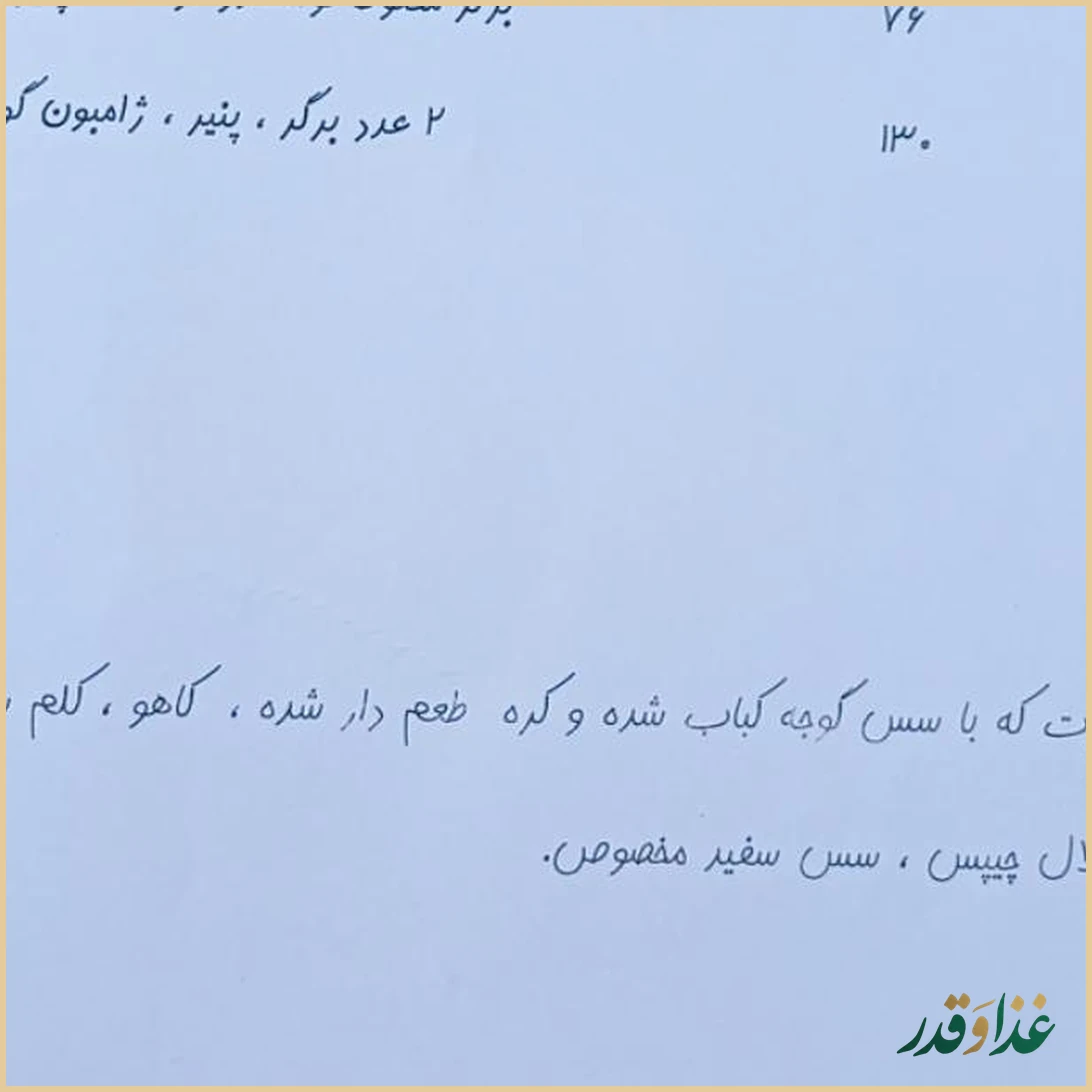 ۷۶
۱۳۰ ۲ عدد برگر ، پنیر ، ژامبون
که با سس گوجه کباب شده و کره طعم دار شده ، کاهو ، کلم
چیپس ، سس سفید مخصوص.
غذا و قدر